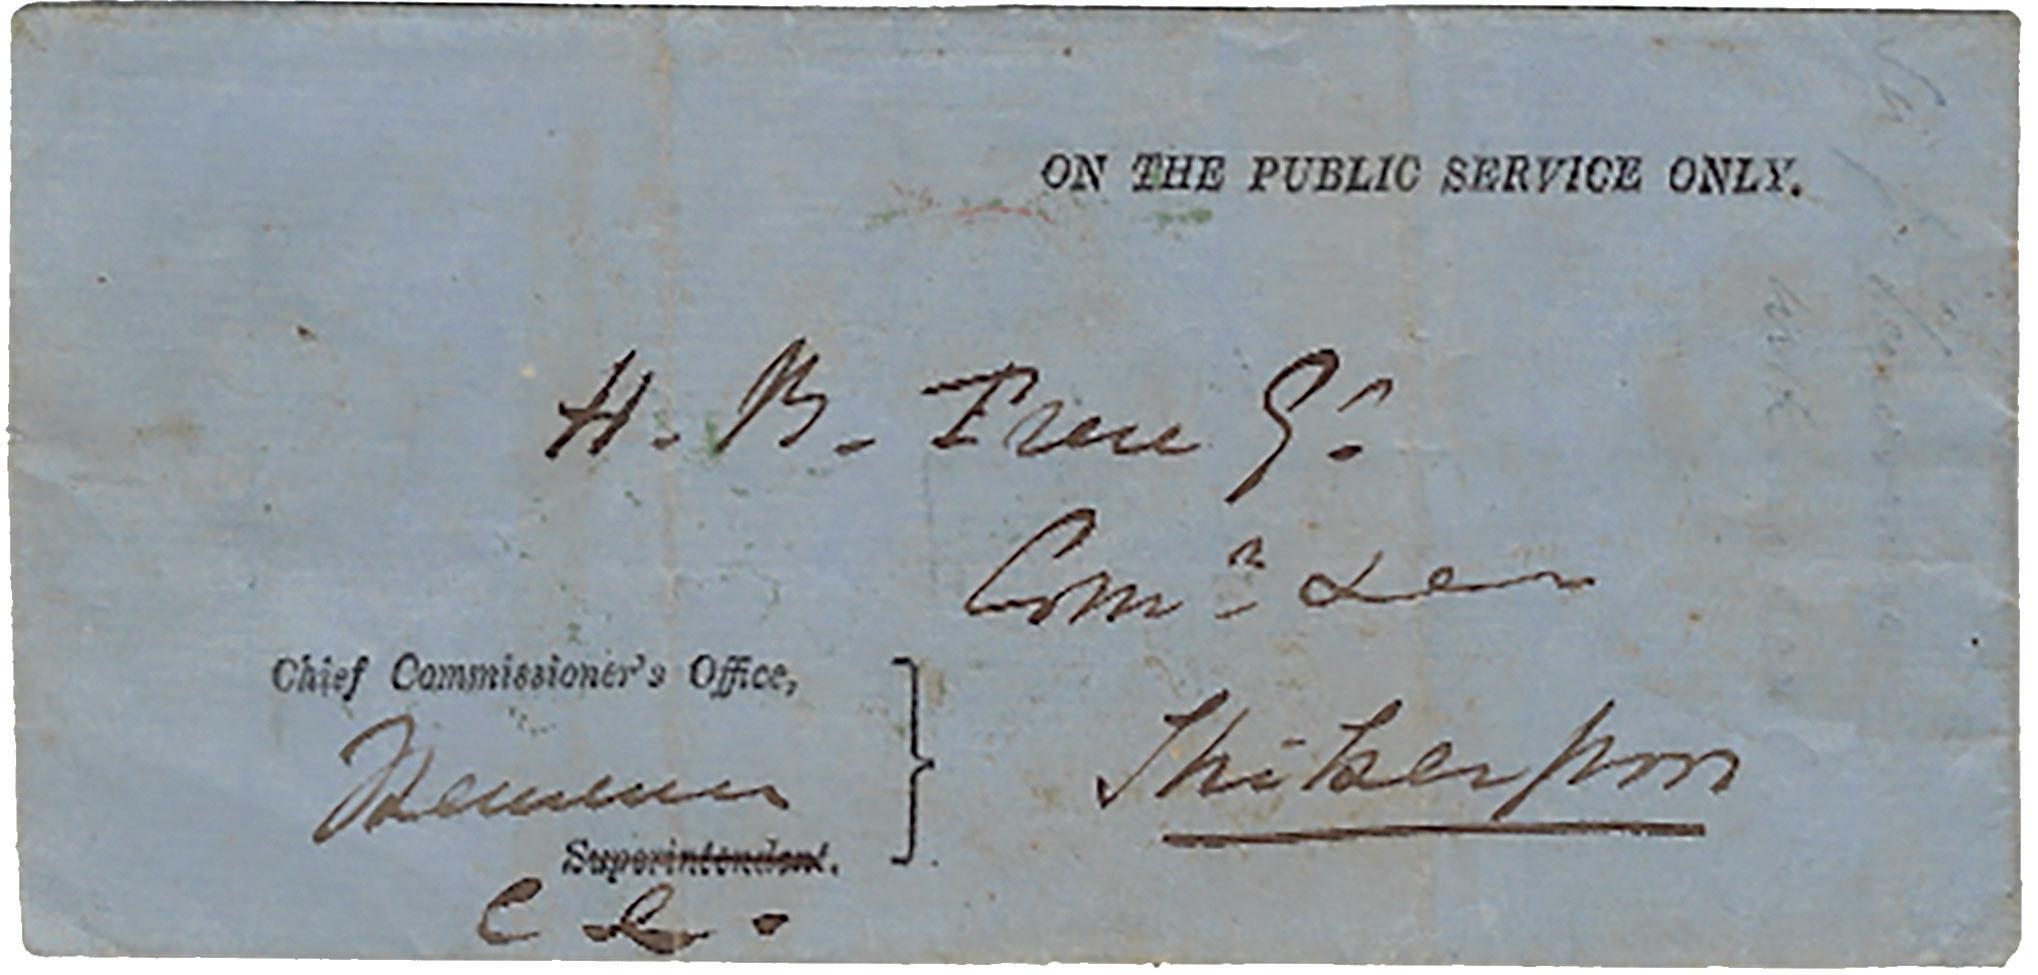 ON THE PUBLIC SERVICE ONLY.
H. B. Frere Esq.
Comr &c
Chief Commissioner's Office,
Superintendent.
Shikerpoor